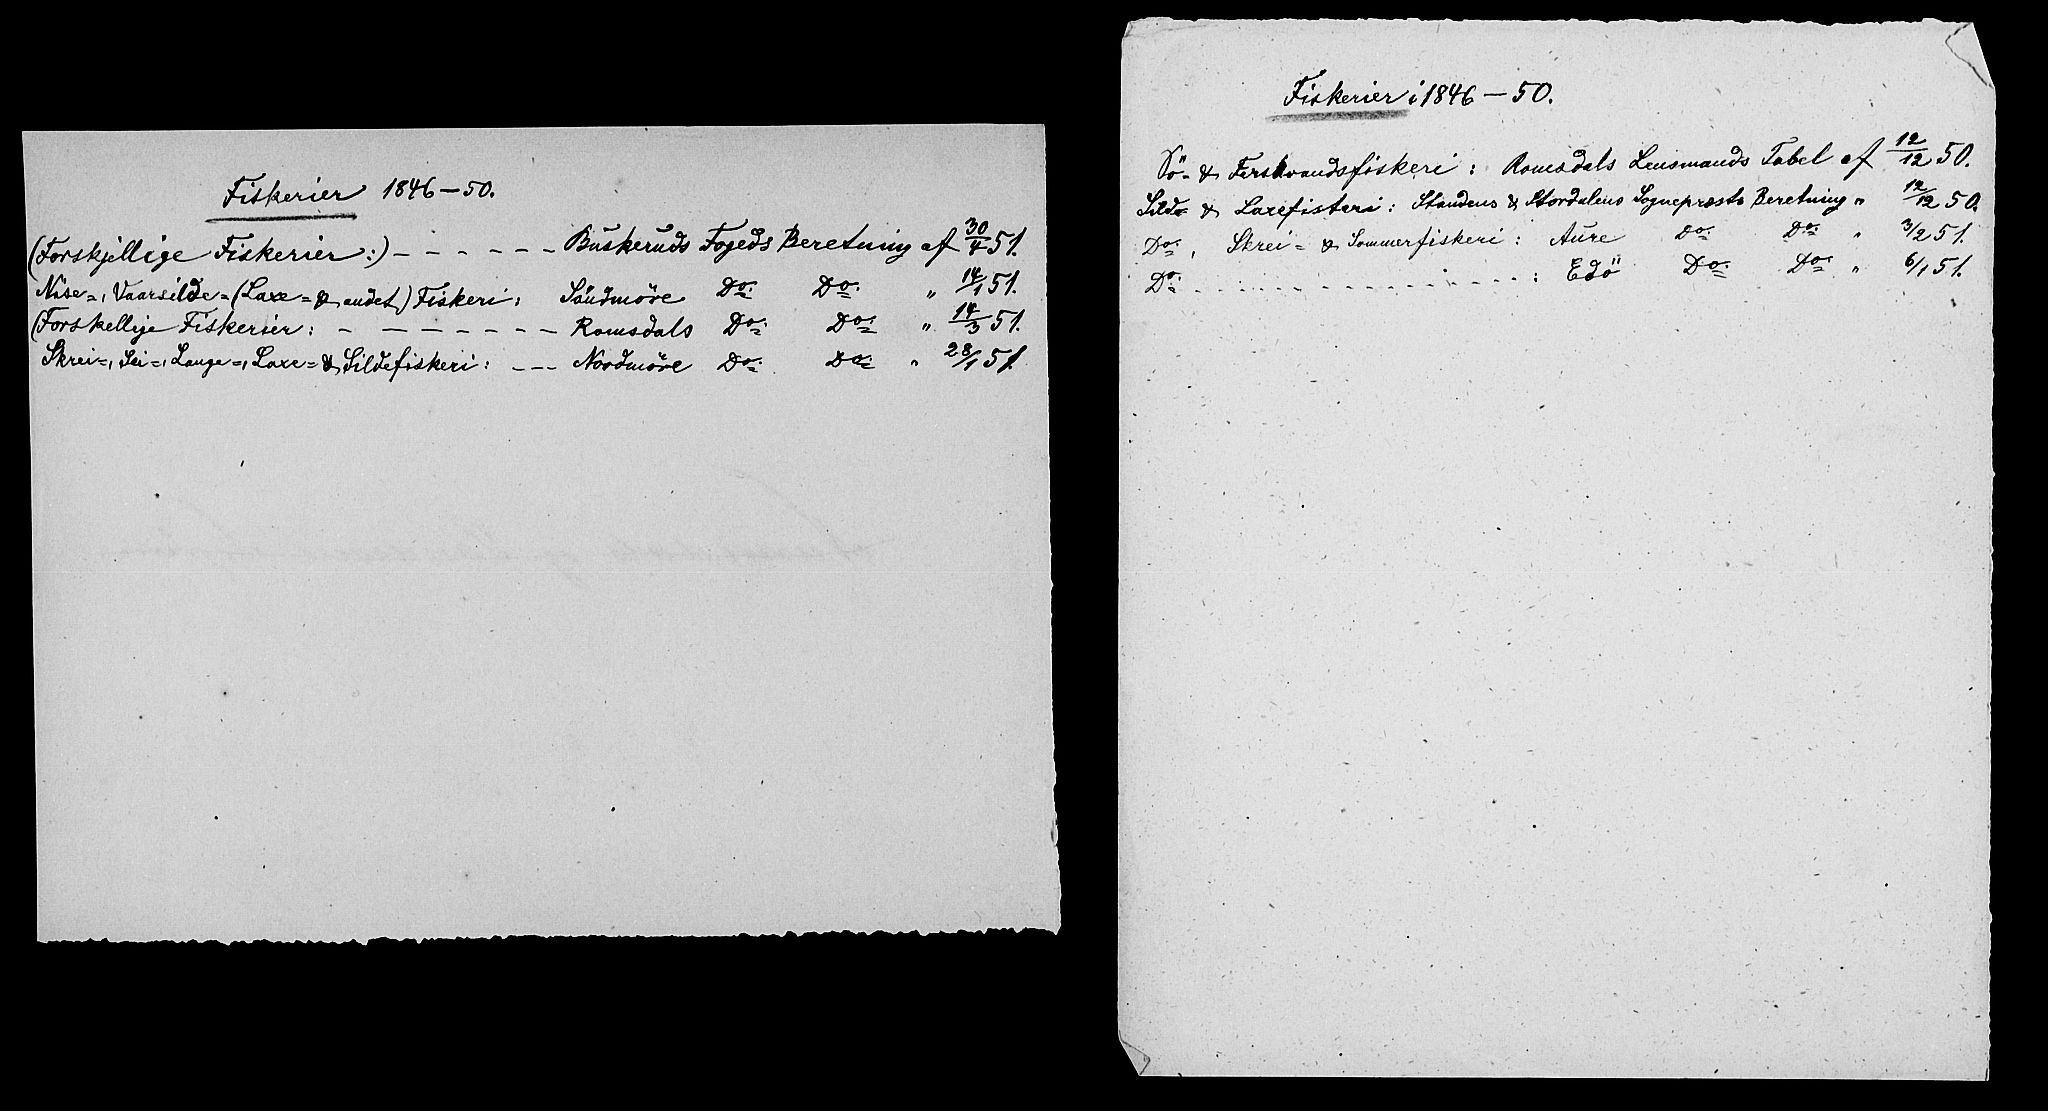 Fiskerier 1846-50.
(Forskjellige Fiskerier:) - - - - - - Buskeruds Fogeds Beretning af 30/4 51.
Nise=, Vaarsilde=(Laxe=& andet) Fiskeri: Söndmöre Do: Do: " 14/1 51.
(Forskellige Fiskerier: - - - - - - - Romsdals Do: Do: " 14/3 51.
Skrei=, Sei=, Lange=, Laxe=& Sildefiskeri: - - - Nordmöre Do: Do: " 28/1 51.
Fiskerier i 1846-50.
Sö- & Ferskvandsfiskeri: Romsdals Lensmands Tabel af 12/12 50.
Silde= & Laxefiskeri: Strandens & Stordalens Sogneprests Beretning " 12/12 50.
Do:, Skrei= & Sommerfiskeri: Aure Do: Do: " 3/2 51.
Do: - - - - - - - - - - - - - - : Edö Do: Do: " 6/1 51.